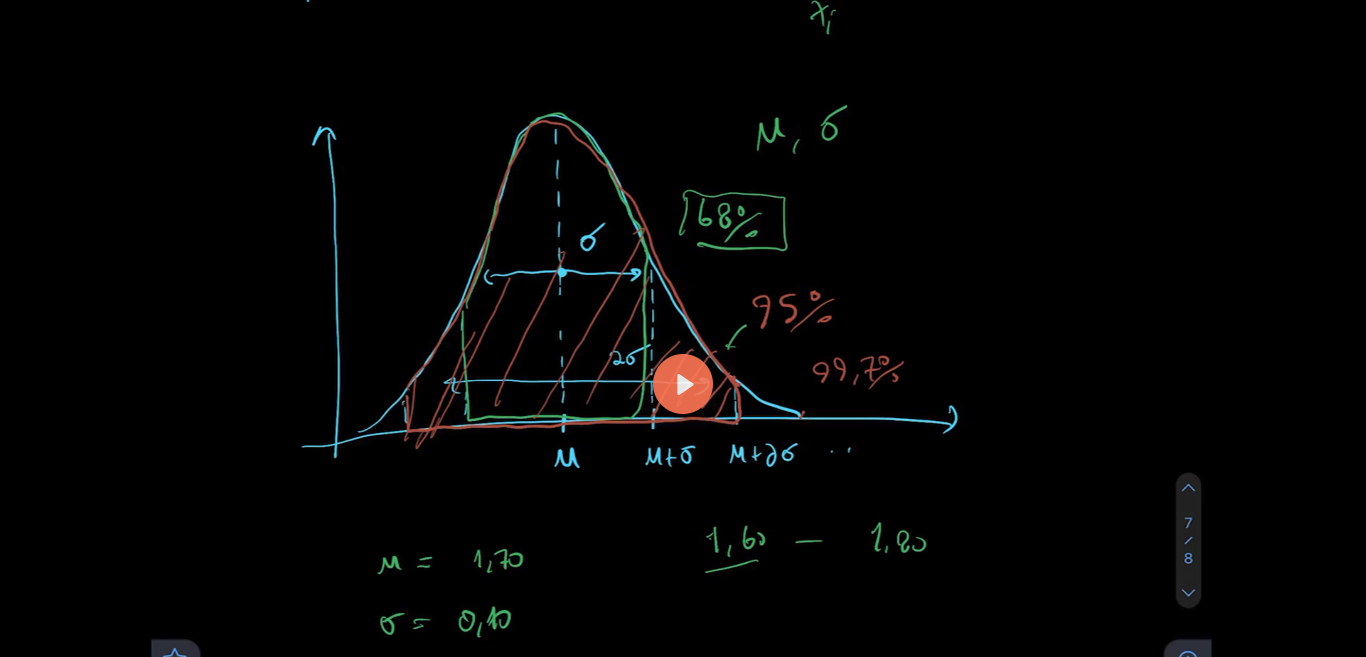 xᵢ
μ, σ
68%
σ
95%
2σ
99,7%
μ μ+σ μ+2σ ..
μ = 1,70
1,60 — 1,80
σ = 0,10
7
/
8